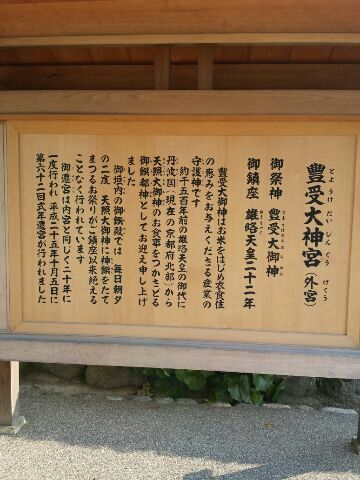 豐受大神宮（外宮）
とようけだいじんぐう げくう
御祭神 豐受大御神
とようけのおおみかみ
御鎮座 雄略天皇二十二年
豐受大御神はお米をはじめ衣食住
の恵みをお与えくださる産業の
守護神です
約千五百年前の雄略天皇の御代に
丹波国（現在の京都府北部）から
天照大御神のお食事をつかさどる
御饌都神としてお迎え申し上げ
ました
御垣内の御饌殿では 毎日朝夕
の二度 天照大御神に神饌をたて
まつるお祭りがご鎮座以来絶える
ことなく行われています
御遷宮は内宮と同じく二十年に
一度行われ 平成二十五年十月五日に
第六十二回式年遷宮が行われました